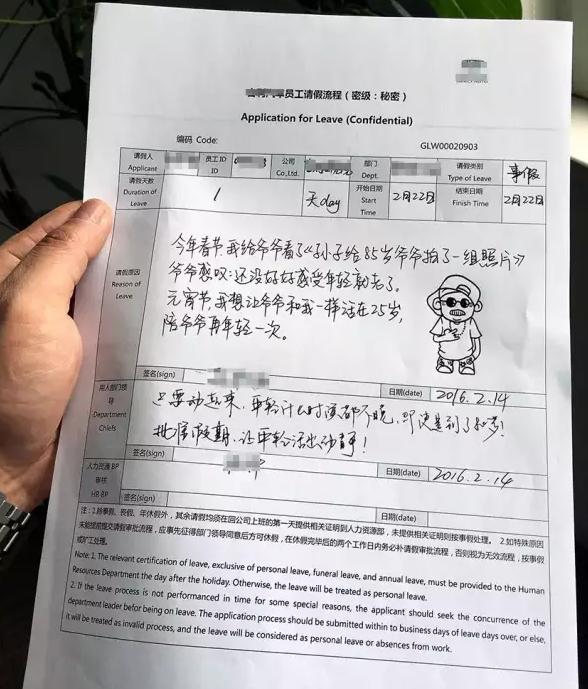 员工请假流程（密级：秘密）
Application for Leave (Confidential)
编码 Code:
GLW00020903
请假人 Applicant
员工ID ID
公司 Co,Ltd.
部门 Dept.
请假类别 Type of Leave
事假
请假天数 Duration of Leave
1
天day
开始日期 Start Time
2月22日
结束日期 Finish Time
2月22日
请假原因 Reason of Leave
今年春节,我给爷爷看了《孙子给85岁爷爷拍了一组照片》
爷爷感叹:还没好好感受年轻就老了。
元宵节,我想让爷爷和我一样活在25岁,
陪爷爷再年轻一次。
签名(sign)
日期(date)
2016.2.14
用人部门领导 Department Chiefs
只要动起来,年轻什么时候都不晚,即使是到了80岁!
批准假期,让年轻活出动静!
签名(sign)
日期(date)
2016.2.14
人力资源BP 审核 HR BP
签名(sign)
日期(date)
注：1.除事假、丧假、年休假外，其余请假均须在回公司上班的第一天提供相关证明到人力资源部，未提供相关证明按事假处理。 2.如特殊原因
未能提前提交请假审批流程，应事先征得部门领导同意后方可休假，在休假完毕后的两个工作日内务必补请假审批流程，否则视为无效流程，按事假
或旷工处理。
Note: 1. The relevant certification of leave, exclusive of personal leave, funeral leave, and annual leave, must be provided to the Human
Resources Department the day after the holiday. Otherwise, the leave will be treated as personal leave.
2. If the leave process is not performanced in time for some special reasons, the applicant should seek the concurrence of the
department leader befor being on leave. The application process should be submitted within to business days of leave days over, or else,
it will be treated as invalid process, and the leave will be considered as personal leave or absences from work.